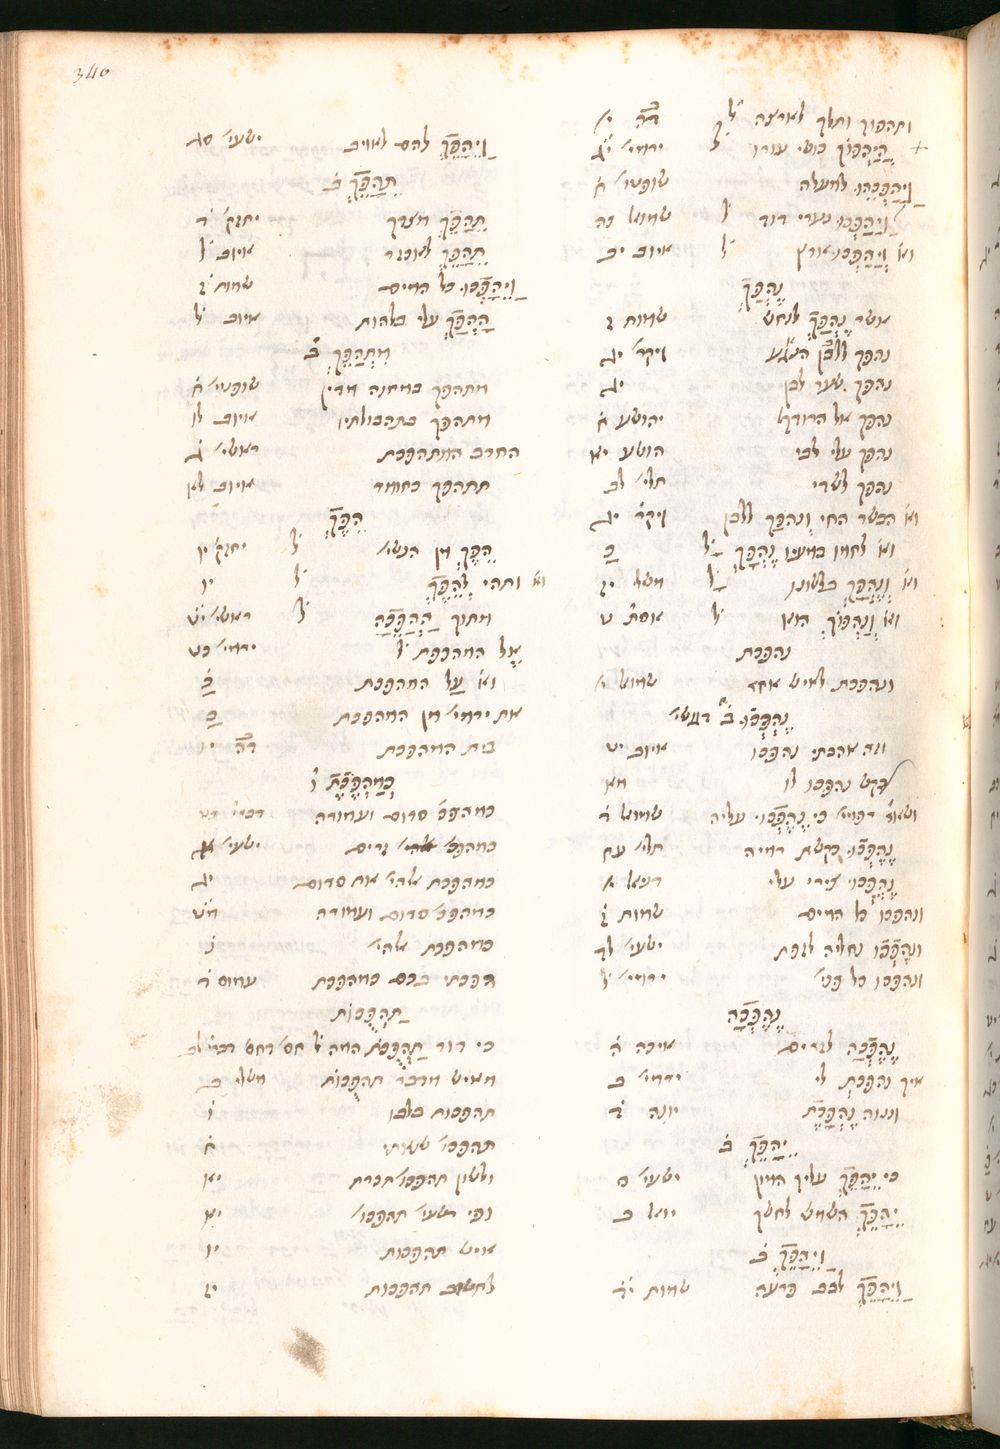 340
ותהפוך ותלך לארצה
הֲיַהֲפוֹךְ כושי עורו ל ירמי׳ יג
וְיַהֲפְכֵהוּ למעלה שופטי׳
וַיַּהַפְכוּ נערי דוד ל שמואל כה
וא׳ וְיַהַפְכוּ ארץ ל איוב יב
נֶהְפַּךְ
אשר נֶהְפַּךְ לנחש שמות ז
נהפך ללבן הנגע ויקר׳ יג
נהפך שער לבן יג
נהפך אל הרודף יהושע ח
נהפך עלי לבי הושע יא
נהפך לשדי תלי׳ לב
וא׳ הבשר החי ונהפך ללבן ויקר׳ יג
וא׳ לחמו במעיו נֶהְפָּךְ ל כ
וא׳ וְנֶהְפָּךְ בלשונו ל משל יז
וא׳ וְנַהֲפוֹךְ הוא ל אסת׳ ט
נהפכת
ונהפכת לאיש אחר שמוא׳ י
נֶהֶפְכוּ
וזה אהבתי נהפכו איוב יט
נהפכו לו
כי נֶהֶפְכוּ עליה שמואל ד
נֶהְפְּכוּ כקשת רמיה תלי׳ עח
נֶהֶפְכוּ צירי עלי דניאל י
ונהפכו כל המים שמות ז
ונֶהֶפְכוּ נחליה לזפת ישעי׳ לד
ונהפכו כל פני׳ ירמי׳ ל
נֶהֶפְּכָה
נֶהֶפְכָה לזרים איכה ה
איך נהפכת לי ירמי׳ ב
ונינוה נֶהְפָּכֶת יונה ג
יֵהָפֵךְ ב
כי יֵהָפֵךְ עליך המון ישעי׳ ס
יֵהָפֵךְ השמש לחשך יואל ב
וַיֵּהָפֵךְ ב
וַיֵּהָפֵךְ לבב פרעה שמות יד
וַיֵּהָפֵךְ להם לאויב ישעי׳ סג
תֵּהָפֵךְ ב
תֵּהָפֵךְ איוב ל
וַיֵּהָפְכוּ כל המים שמות ז
הָהְפַּךְ עלי בלהות איוב ל
מִתְהַפֵּךְ ב
מתהפך במחנה מדין שופטי׳
מתהפך בתחבולתיו איוב לז
החרב המתהפכת ראשי׳ ג
תתהפך כחומר איוב לח
הֵפֶךְ
הֵפֶךְ מן הנשי׳ ל יחזק׳ יו
וא׳ ותהי לְהֵפֶךְ ל יו
מתוך הַהֲפֵכָה ל ראשי׳ יט
אל המהפכת ל ירמי׳ כט
וא׳ על המהפכת כ
את ירמי׳ מן המהפכת כ
בית המהפכת
כְּמַהְפֵּכַת ו
כמהפכ׳ סדום ועמורה דברי׳ כט
כמהפכ׳ זרים ישעי׳
כמהפכת אלהי׳ את סדום יג
כמהפכ׳ סדום ועמורה
כמהפכת אלהי׳ נ
הפכתי בכם כמהפכת עמוס ד
תַּהְפֻּכוֹת
כי דור תַהְפֻּכֹת המה
מאיש מדבר תהפכות משלי ב
תהפכות בלבו ו
תהפכו׳ שנאתי ח
ולשון תהפכו׳ תכרת
ופי רשעי׳ תהפכו׳
איש תהפכות יו
לחשוב תהפכות יו